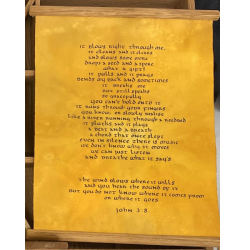 it blows right through me,
it cleans and it clears
and blows some more
drops a seed and a spore
what a gift!
it pulls and it pushes
bends my back and sometimes
it breaks me
but still
so gracefully
you can't hold onto it
it runs through your fingers
you know, or slowly
like a river running through a
it plucks and it plays
a beat and a breath
a chord that once slept
even in silence there is music
we don't know why it moves
we can just listen
and breathe what it say's
the wind blows where it wills
and you hear the sound of it
but you do not know where it comes from
or where it goes
john 3:8